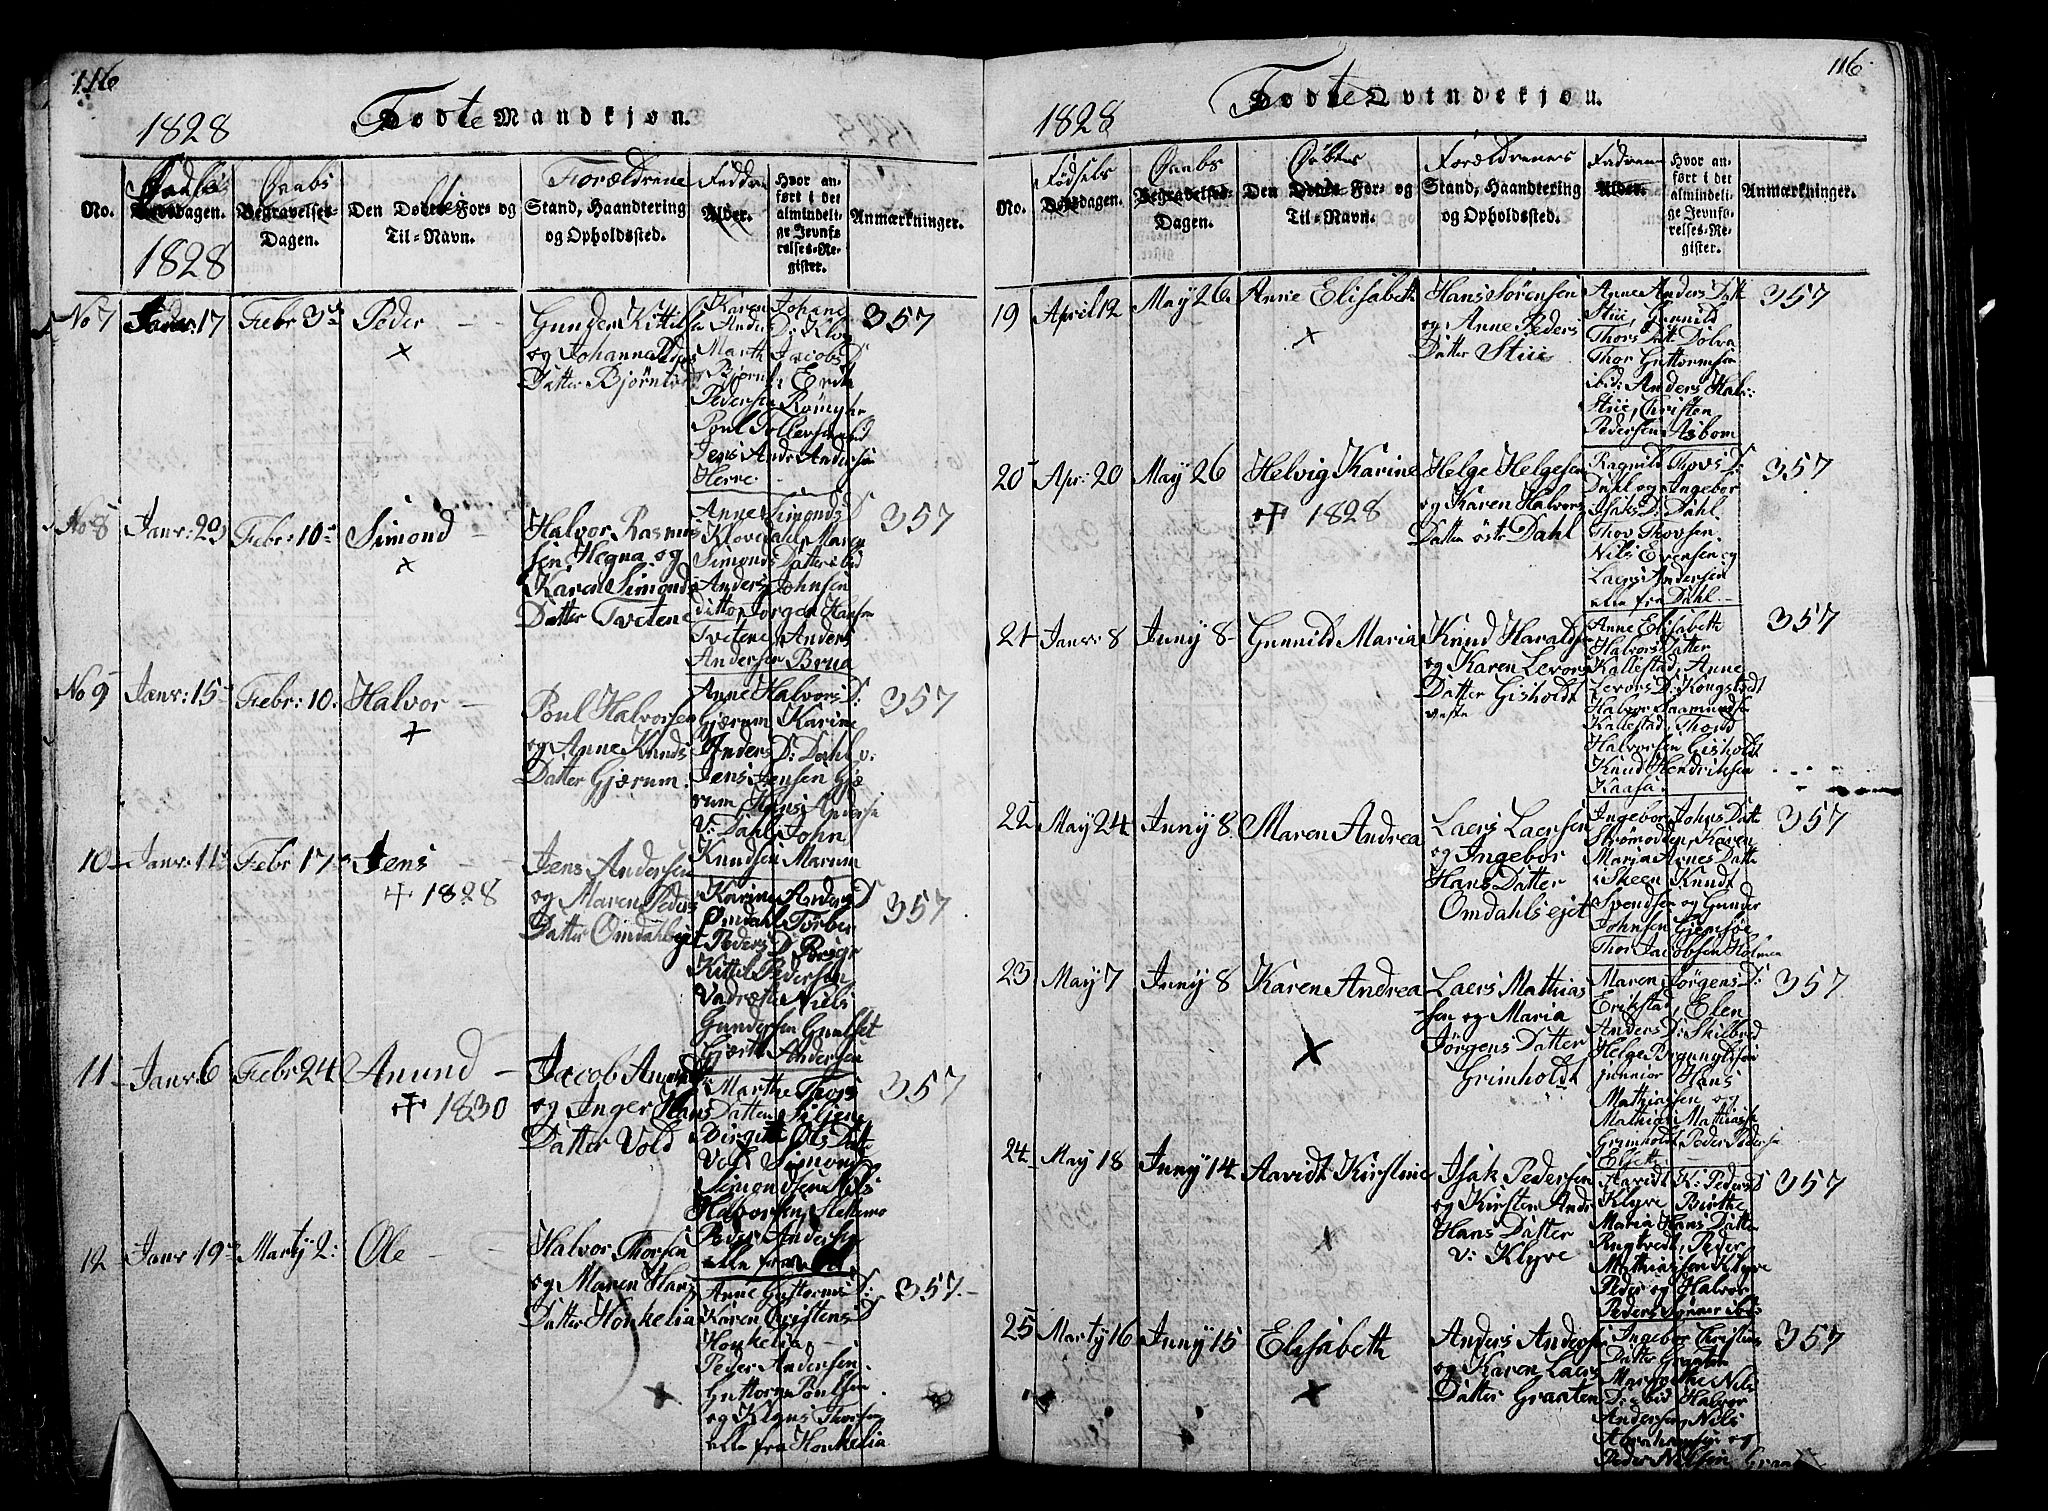 116
1828
Fødte Mandkjøn.
No.
Fødsels
Dødsdagen.
1828
Daabs
Begravelses-
Dagen.
Døbtes
Den Dødes For- og
Til-Navn.
Forældrene
Stand, Haandtering
og Opholdssted.
Faddere
Alder.
Hvor an-
ført i det
almindeli-
ge Jevnfø-
relses-Re-
gister.
Anmærkninger.
No 7
Janr: 17
Febr 3
Peder
Gunder Kittils
og Johanne
Datter Bjørn
Karen Johane
Anders D: Klov
Marth Jacobs D
Bjørn Erik
Pedersen
Poul Tollevsen
Jens Anders Andersen
Herre
357
No 8
Janr: 29
Febr: 10
Simond
Halvor Rasmus
sen Hegna og
Karen Simonds
Datter Tvetene
Anne Simonds D
Klovdahl Maren
Simonds Datter ibid
Anders Johnsen
ditto, Jørgen Hansen
Tvetene Anders
Andersen Brua
357
No 9
Janr: 15
Febr: 10:
Halvor
Poul Halvorsen
og Anne Knuds
Datter Gjærum.
Anne Halvors D:
Gjærum Karine
Anders D: Dahl v:
Jens Jensen Gjæ
rum, Hans Anderse
V: Dahl John
Knudsen Marum
357
10
Janr: 11
Febr 17
Jens
1828
Jens Andersen
og Maren Peders
Datter Omdahlsejet
Karine Anders D
Omdahl Torber
Peders D:
Kittel Pedersen
Vadrette Niels
Gundersen
Gjærth Andersen
357
11
Janr 6
Febr 24
Anund
1830
Jacob Anunds
og Inger Hans
Datter Vold
Marthe Thors
Datter Siljene
Birgitte Ols Datte
Vold Simond
Simondsen Nils
Halvorsen Slettemo
Peder Anders
alle fra
357
12
Janr: 19
Marty 2:
Ole
Halvor Thorsen
og Maren Hans
Datter Honkelia
Anne Guttorms D:
Karen Christens D
Honkelia
Peder Andersen
Guttorm Poulsen
og Klaus Thorsen
alle fra Honkelia
357.
116
1828
Fødte Qvindekjøn.
No.
Fødsels
Dødsdagen.
Daabs
Begravelses-
Dagen.
Døbtes
Den Dødes For- og
Til-Navn.
Forældrenes
Stand, Haandtering
og Opholdssted.
Faddrene
Alder.
Hvor an-
ført i det
almindeli-
ge Jevnfø-
relses-Re-
gister.
Anmærkninger.
19
April 12
May 26
Anne Elisabeth
Hans Sørensen
og Anne Peders
Datter Stii
Anne Anders Datt
Stii, Gunnild
Thors Datt Dolva
Thor Guttormsen
ibid: Anders Hal:
Stii, Christen
Pedersen Asbom
357
20
Apr: 20
May 26
Helvig Karine
1828
Helge Helgesen
og Karen Halvors
Datter østr Dahl
Ragnild Thovs D:
Dahl og Ingebor
Isaks D: Dahl
Thov Thovsen
Nils Evensen og
Laers Andersen
alle fra Dahl
357
21
Janr: 8
Juny 8
Gunnild Maria
Knud Haralds
og Karen Levors
Datter Gisholdt
veste
Anne Elisabeth
Halvors Datter
Kallestad, Anne
Levors D: Kongstedt
Halvor Saamundsen
Kallestad, Thord
Halvorsen Gisholdt
Knud Hendriksen
Kaasa
357
22
May 24
Juny 8
Maren Andrea
Laers Laersen
og Ingebor
Hans Datter
Omdahlsejet
Ingebor Johns Datt
Strømodden, Karen
Maria Arnes Datte
i Skeen Knudt
Spendsen og Gunder
Johnsen Gjemsøe
Thor Jacobsen Holmen
357
23
May 7
Juny 8
Karen Andrea
Laers Mathias
sen og Maria
Jørgens Datter
Grimholdt
Maren Jørgens D:
Erikstad, Elen
Anders D: Skilbred
Helge Brynnylfsen
junnior Hans
Mathiassen og
Mathias Mathiasse
Grimholdt Peder Pederse
357
24
May 18
Juny 14
Aavidt Kirstine
Isak Pedersen
og Kirsten And
Hans Datter
V: Klyve
Aavidt K: Peders D
Klyve Birthe
Maria Hans Datter
Rugtvedt, Peder
Mathiassen Klyve
Peder og Halvor
Peders Sønner ibid
357
25
Marty 16
Juny 15
Elisabeth
Anders Anders
og Karen Laers
Datter Graaten
Ingebor Christens
Datter Graaten
Margrethe Nils
D: ibid Halvor
Andersen, Nils
Abrahamsen og
Peder Nilsen Graat
357